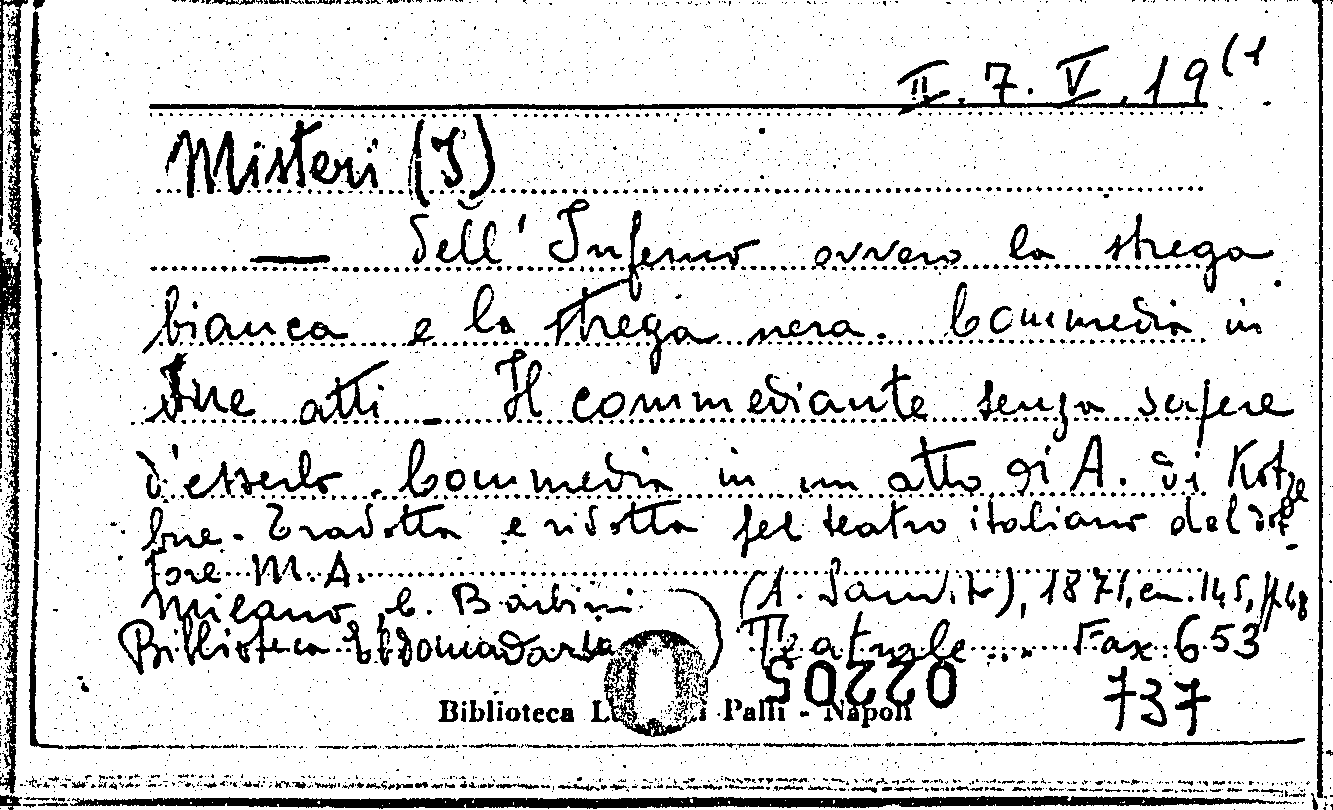 II. 7. V. 19 (1
Misteri (I)
— dell' Inferno ovvero la strega
bianca e la strega nera. Commedia in
due atti - Il commediante senza sapere
d'esserlo. Commedia in un atto di A. di Kotze
bue. Tradotta e ridotta pel teatro italiano dal dot-
tore M. A.
Milano, C. Barbini (A. ), 1871, cm. 14,5, pp. 48
Biblioteca Ebdomadaria Teatrale ... Fax. 653
02205
737
Biblioteca Palli - Napoli